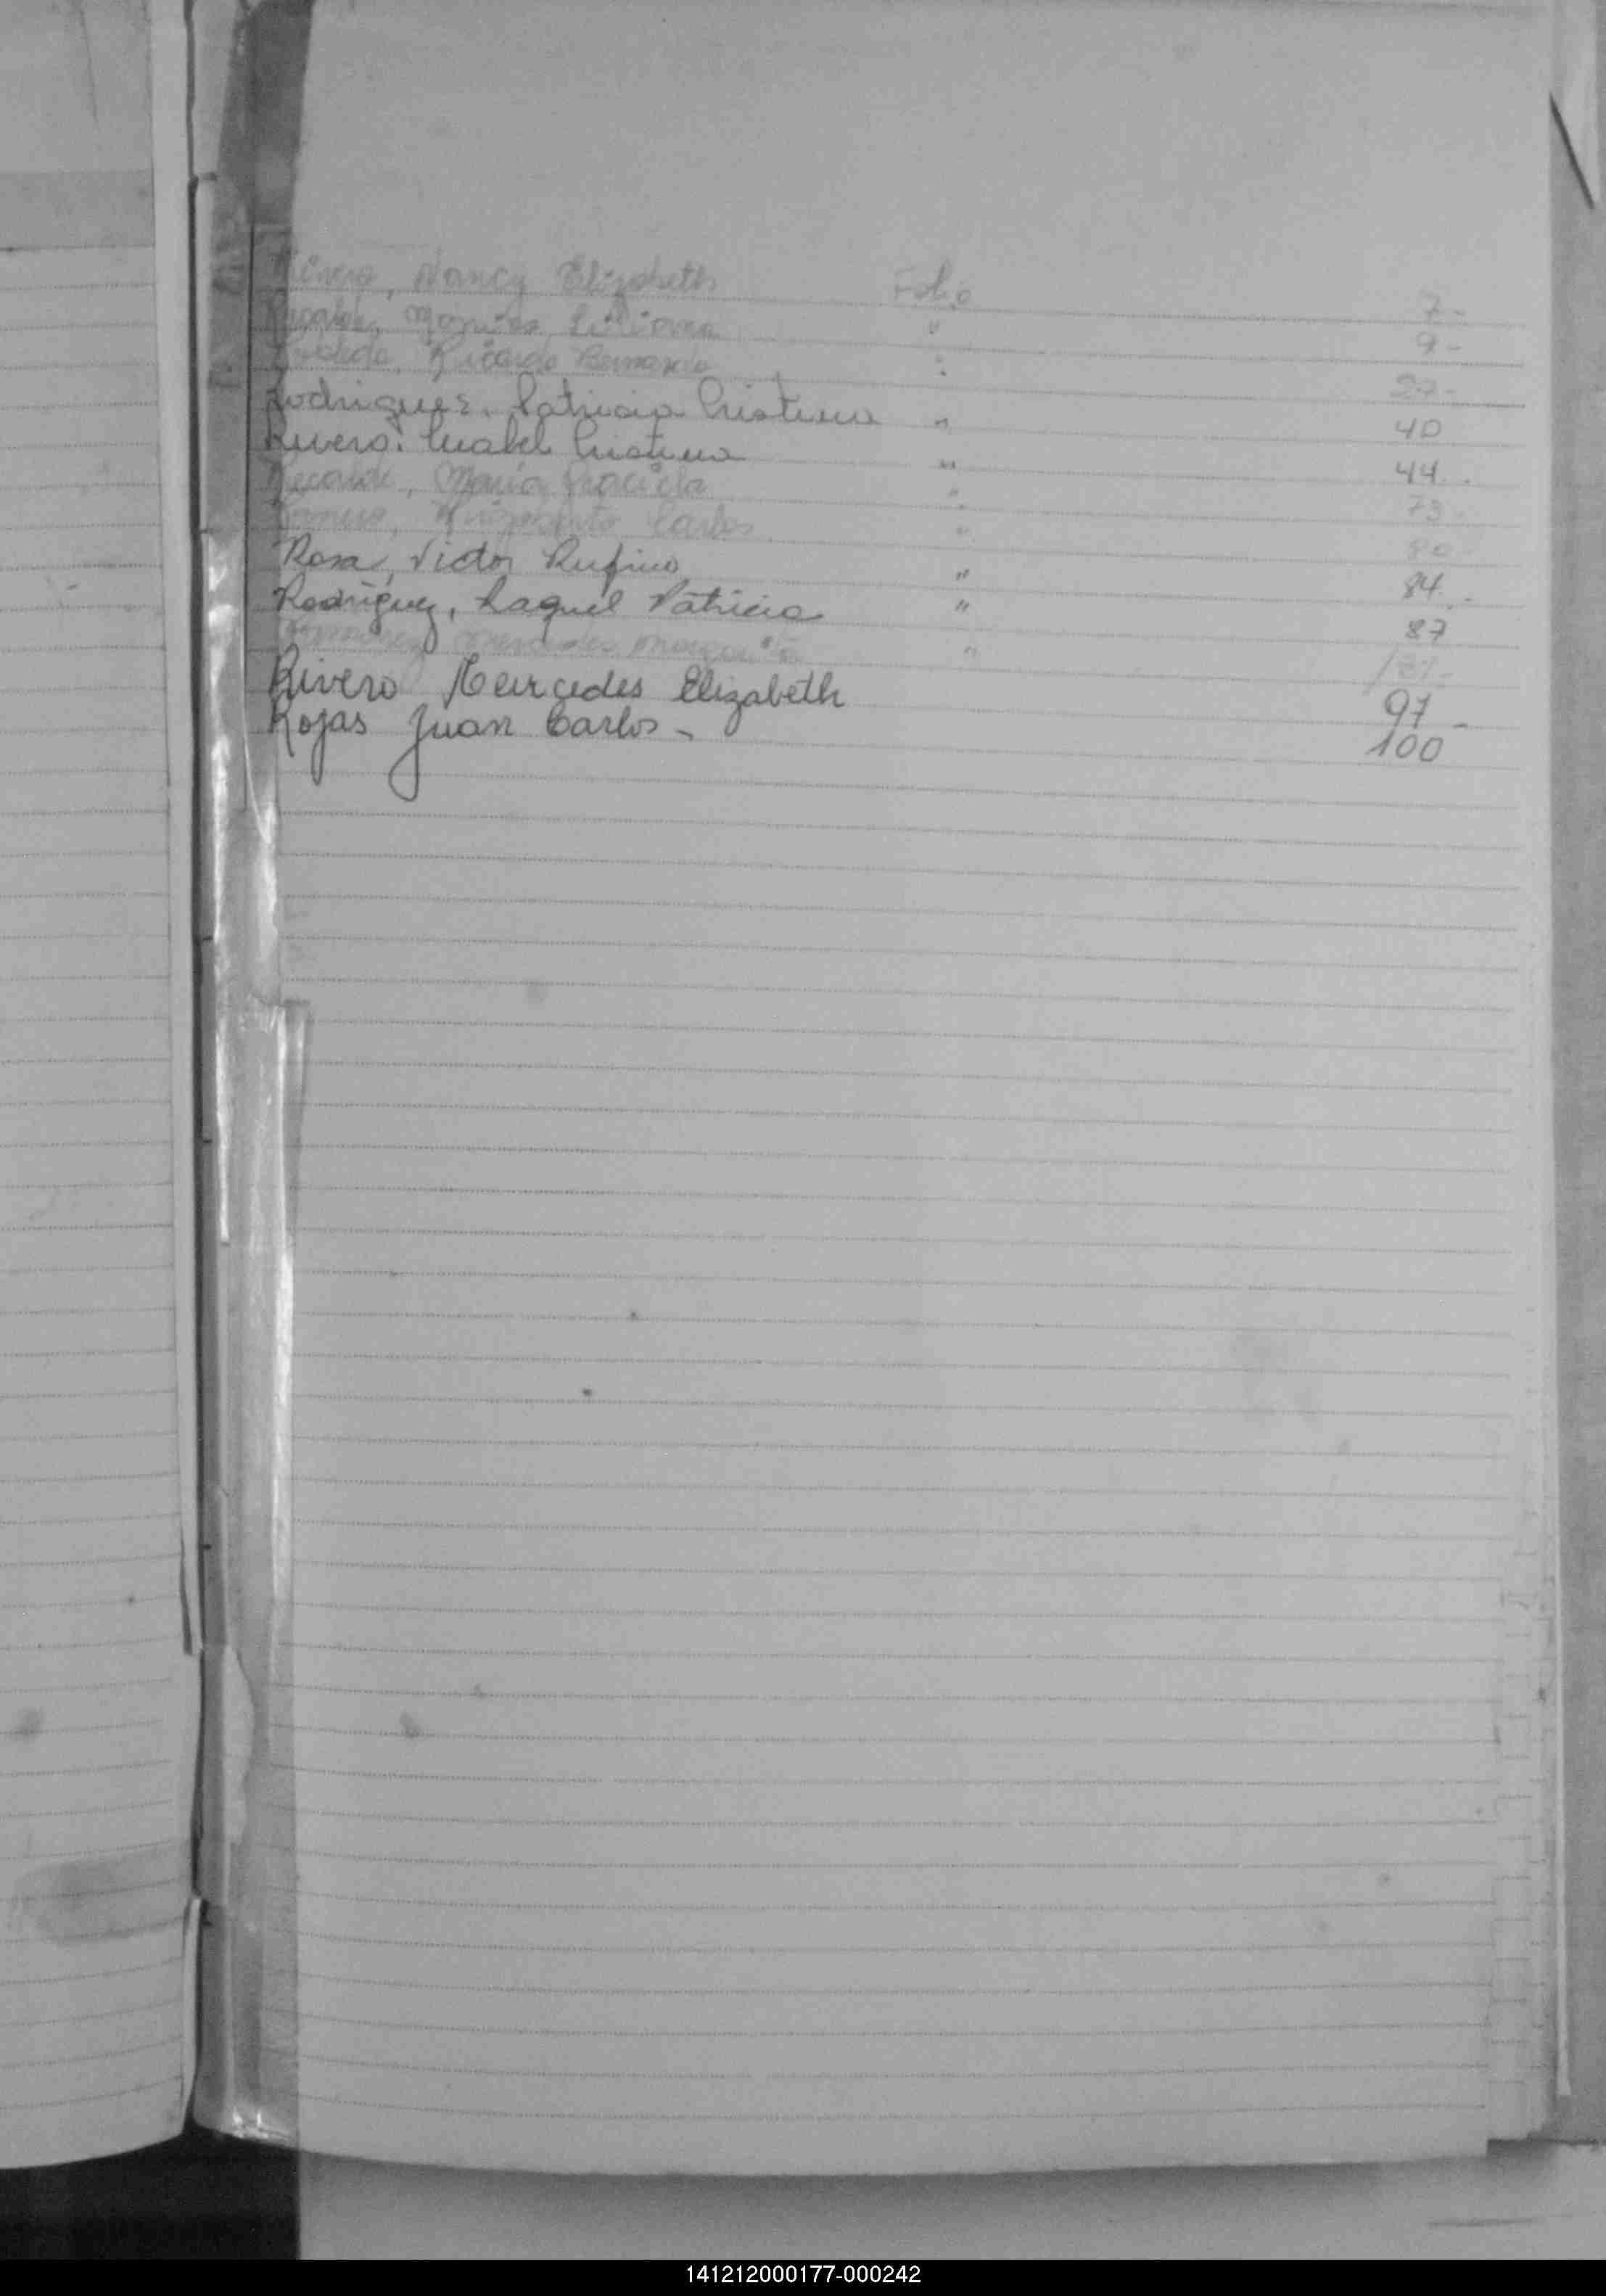 Rivero, Nancy Elizabeth Folio 7-
Recalde, Monica Liliana " 9-
Ricardo Bernardo " 27-
Rodriguez, Patricia Cristina " 40
Rivero, Mabel Cristina " 44.
Recalde, María Graciela " 73-
Carlos " 80
Rosa, Victor Rufino " 84.-
Rodríguez, Raquel Patricia " 87
Mercedes "
Rivero Mercedes Elizabeth 97-
Rojas Juan Carlos- 100
141212000177-000242